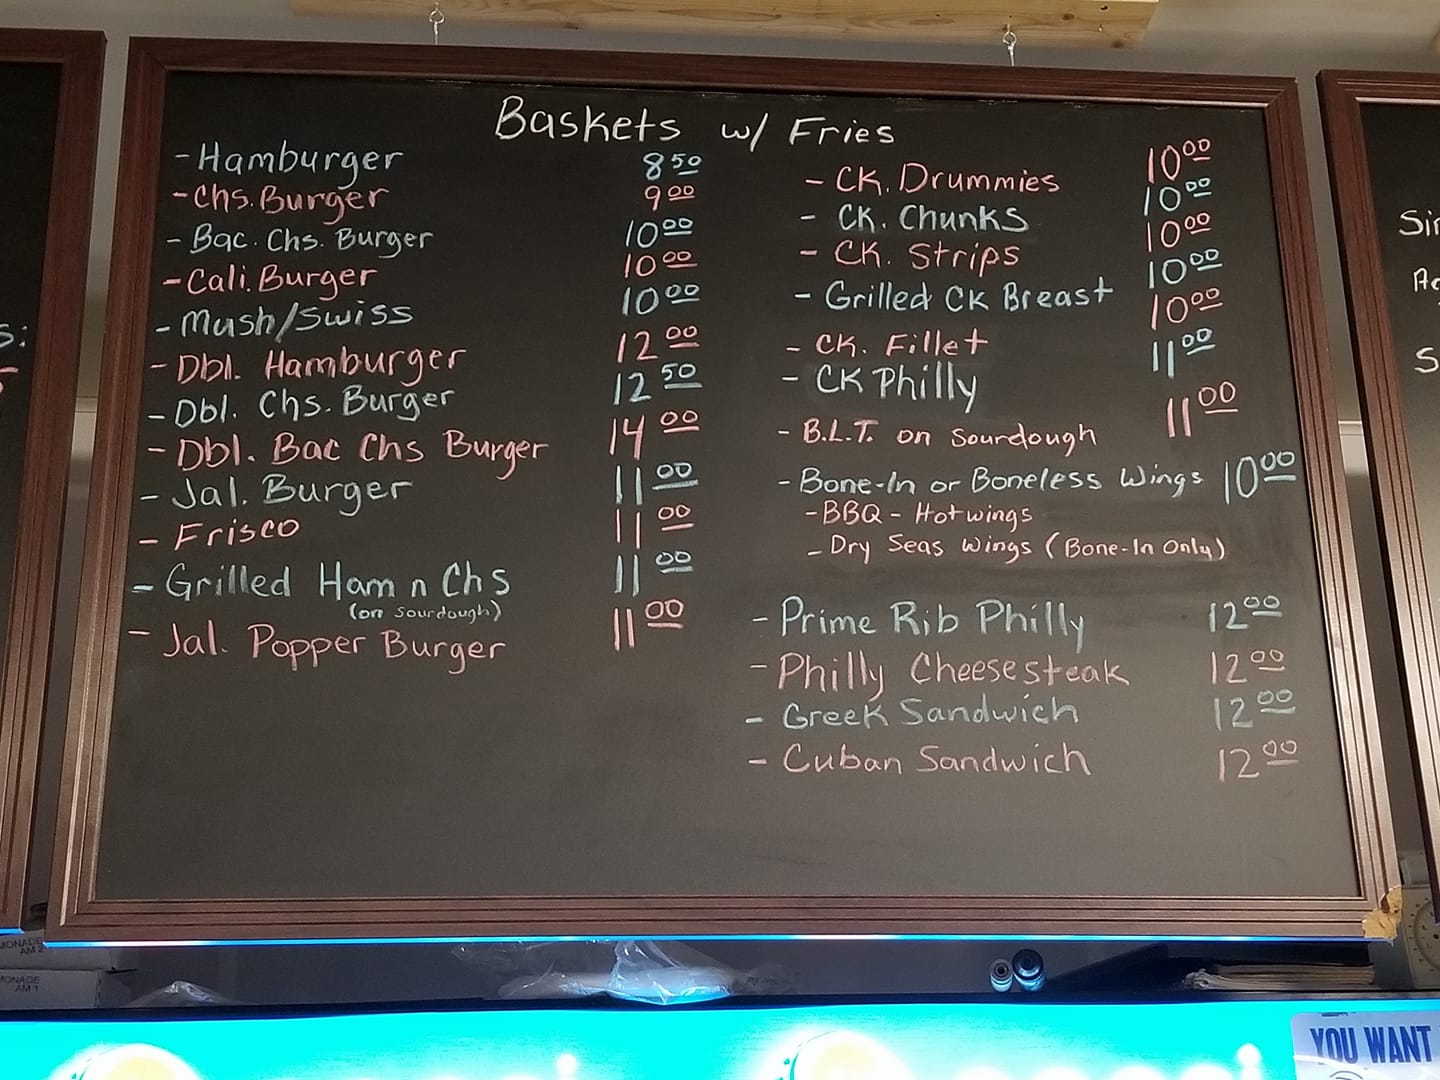 Baskets w/ Fries
- Hamburger 8 50
- Chs. Burger 9 00
- Bac. Chs. Burger 10 00
- Cali. Burger 10 00
- Mush/Swiss 10 00
- Dbl. Hamburger 12 00
- Dbl. Chs. Burger 12 50
- Dbl. Bac Chs Burger 14 00
- Jal. Burger 11 00
- Frisco 11 00
- Grilled Ham n Chs 11 00
(on Sourdough)
- Jal. Popper Burger 11 00
- CK. Drummies 10 00
- CK. Chunks 10 00
- CK. Strips 10 00
- Grilled CK Breast 10 00
- CK. Fillet 10 00
- CK Philly 11 00
- B.L.T. on Sourdough 11 00
- Bone-In or Boneless Wings 10 00
- BBQ - Hot wings
- Dry Seas Wings (Bone-In Only)
- Prime Rib Philly 12 00
- Philly Cheesesteak 12 00
- Greek Sandwich 12 00
- Cuban Sandwich 12 00
YOU WANT